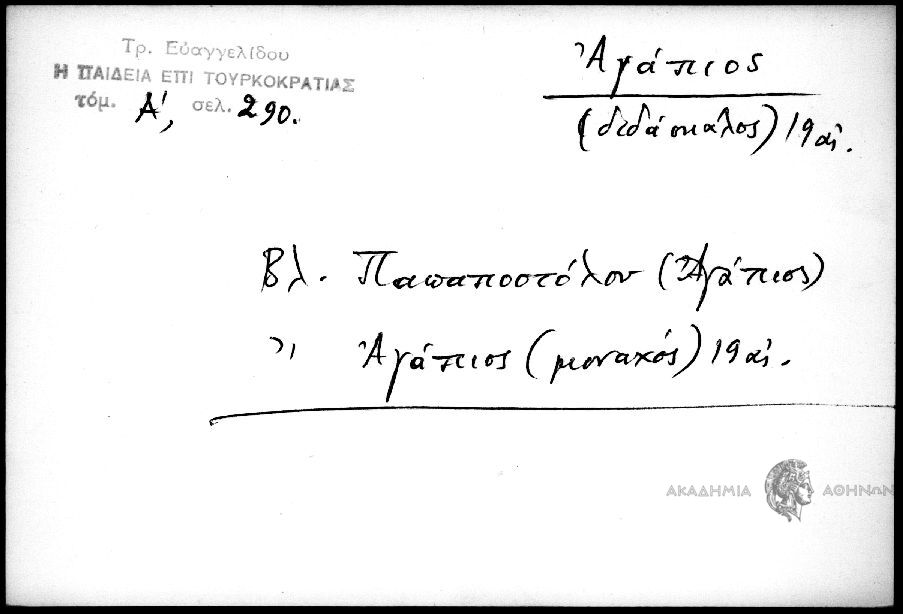 Τρ. Εὐαγγελίδου
Η ΠΑΙΔΕΙΑ ΕΠΙ ΤΟΥΡΚΟΚΡΑΤΙΑΣ
τόμ. Α', σελ. 290.
Ἀγάπιος
(διδάσκαλος) 19 αἰ.
Βλ. Παπαποστόλου (Ἀγάπιος)
〃 Ἀγάπιος (μοναχός) 19 αἰ.
ΑΚΑΔΗΜΙΑ ΑΘΗΝΩΝ